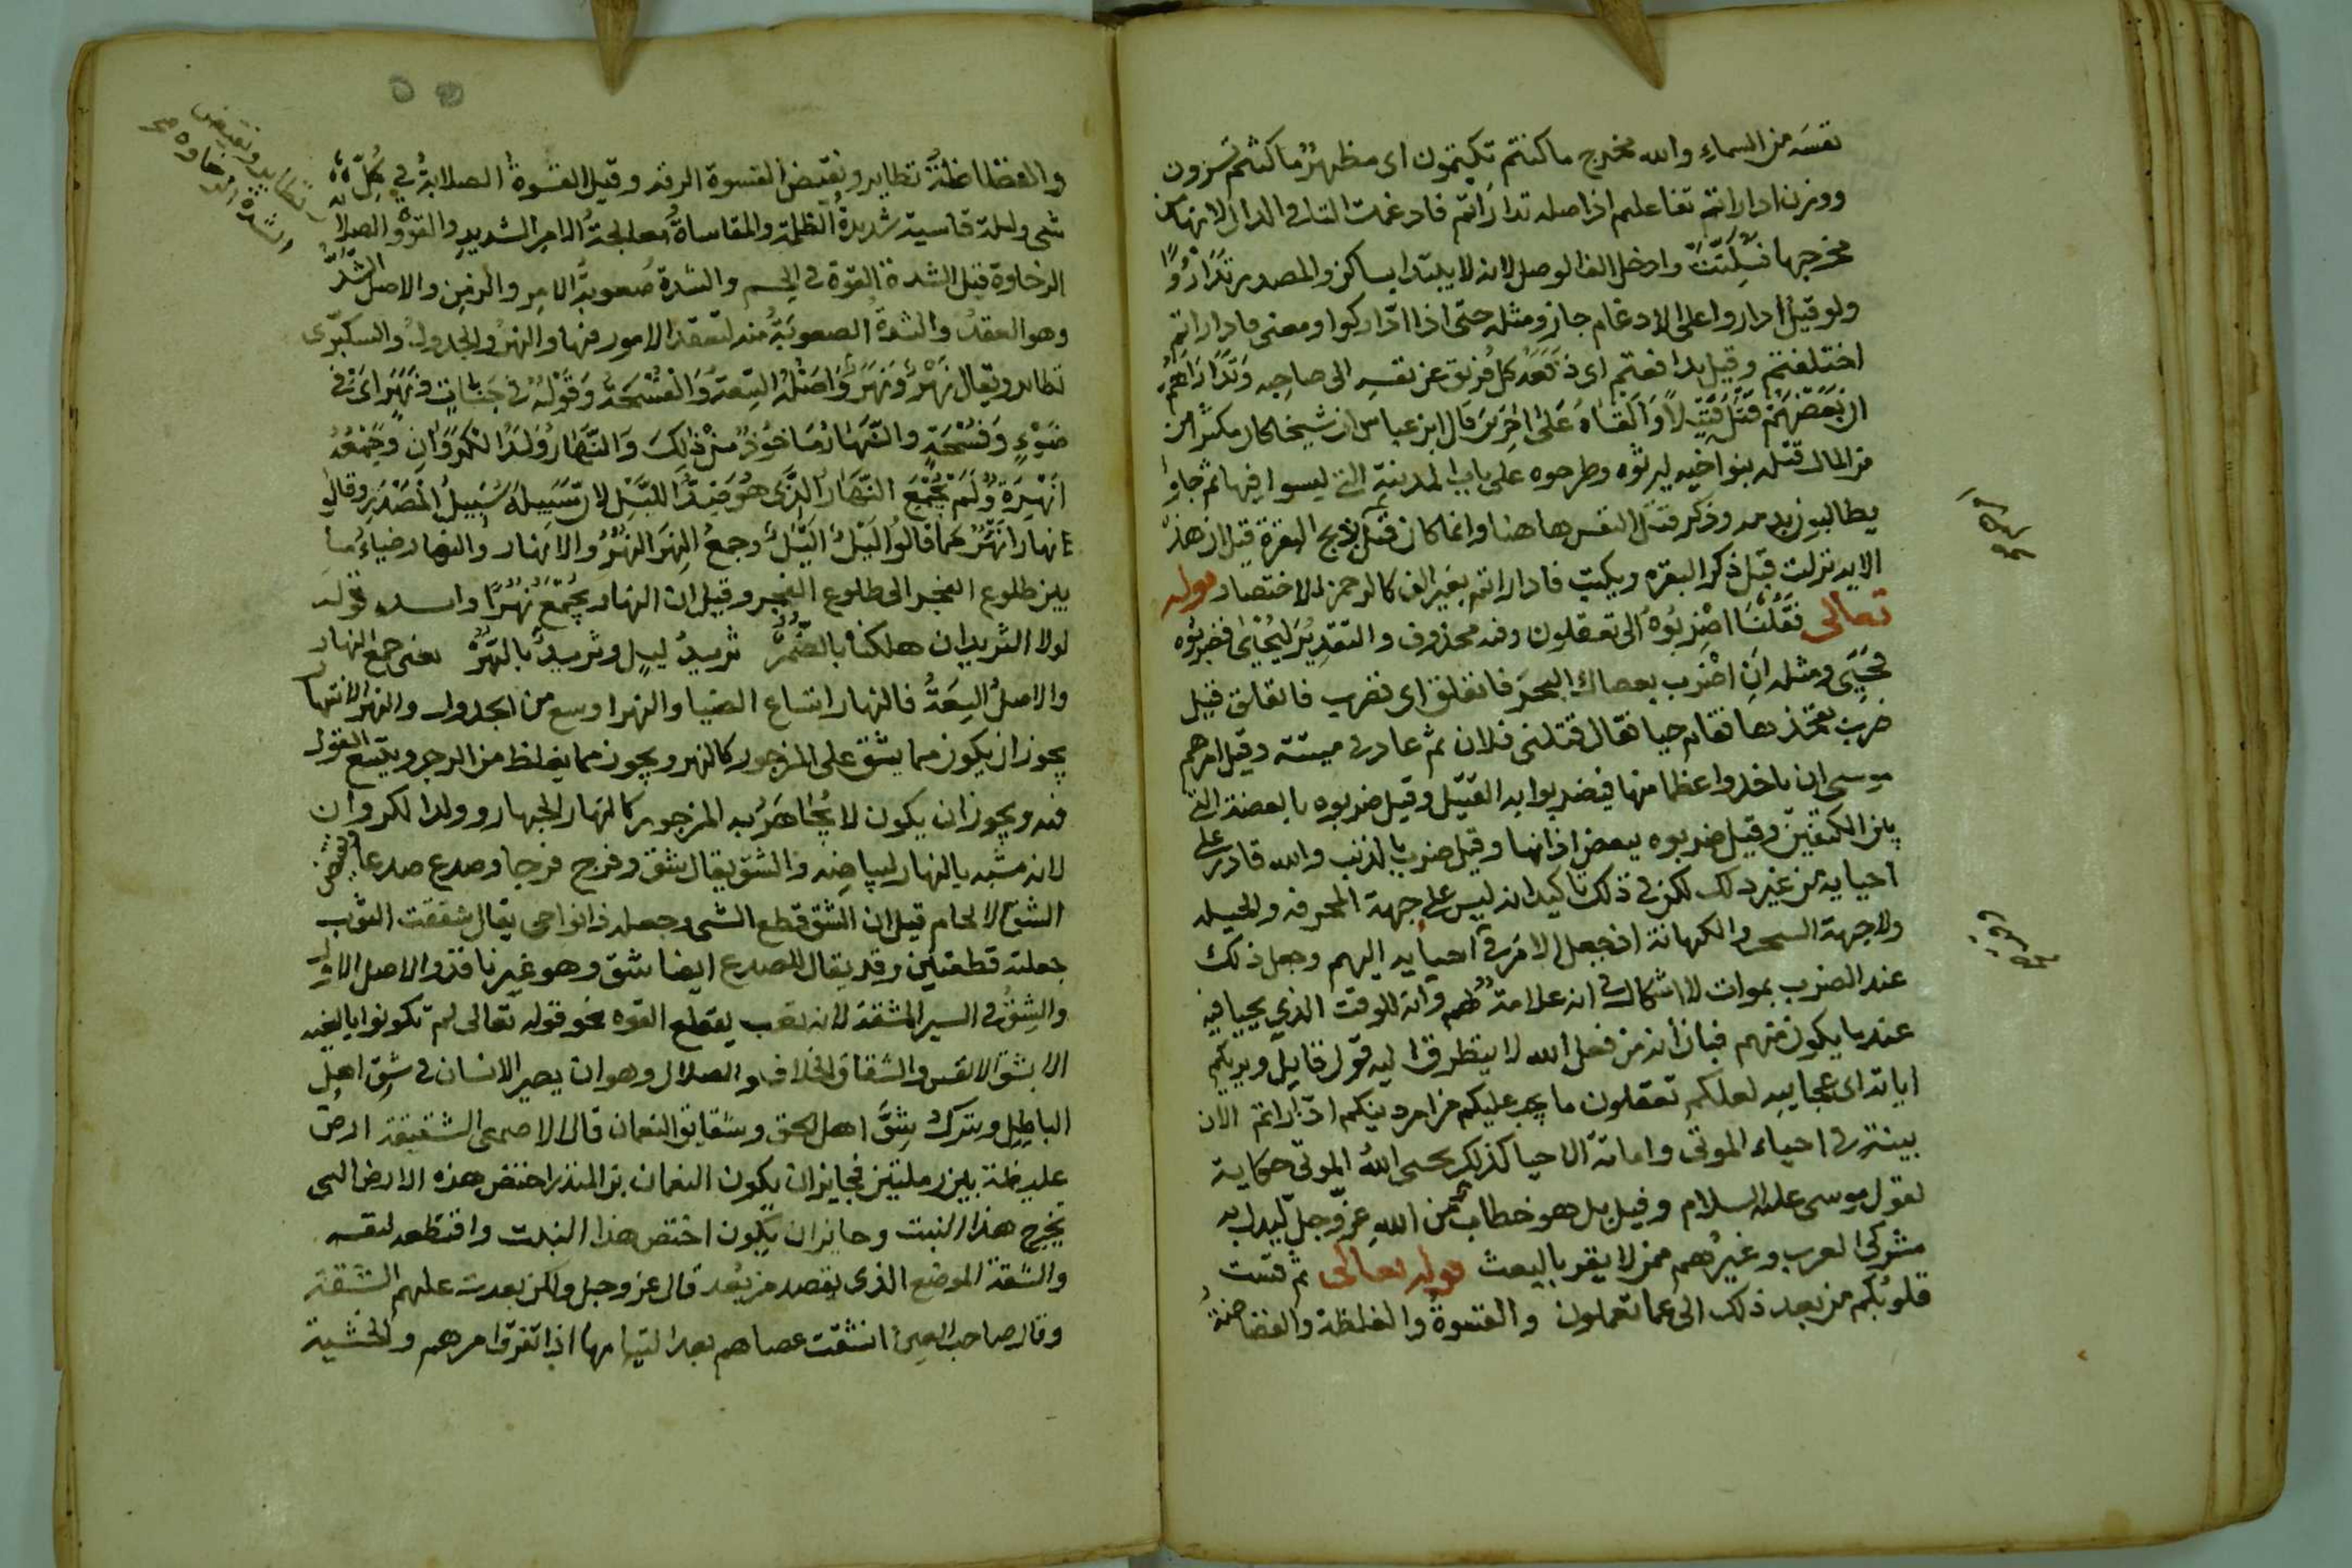 نفسه من السماء والله مخرج ما كنتم تكتمون اى مظهر ما كنتم تسرون
ووزن اداراتم تفاعلتم اذ اصله تداراتم فادغمت التا فى الدال لانها من
مخرجها فسكنت وادخل الف الوصل لانه لا يبتدا بساكن والمصدر تدارؤا
ولو قيل ادارؤا على الادغام جاز ومثله حتى اذا اداركوا ومعنى فاداراتم
اختلفتم وقيل تدافعتم اى دفعه كل فريق عن نفسه الى صاحبه وتداراهم
ان بعضهم قتل قتيلا والقاه على اخرين قال ابن عباس ان شيخا كان مكثرا من
من المال قتله بنو اخيه ليرثوه وطرحوه على باب المدينة التى ليسوا فيها ثم جاوا
يطالبون بدمه وذكر قتل النفس هاهنا وانما كان قبل ذبح البقرة قيل ان هذه
الايه نزلت قبل ذكر البقره ويكتب فاداراتم بغير الف كالرحمن للاختصار قوله
تعالى فقلنا اضربوه الى تعقلون وفيه محذوف والتقدير ليحيى فضربوه
فحيى ومثله ان اضرب بعصاك البحر فانفلق اى فضرب فانفلق قيل
ضرب بفخذها فقام حيا فقال قتلنى فلان ثم عاد ميتة وقيل امرهم
موسى ان ياخذوا عظما منها فيضربوا به القتيل وقيل ضربوه بالبضعة التى
بين الكتفين وقيل ضربوه ببعض اذانها وقيل ضرب بالذنب والله قادر على
احيايه من غير ذلك لكن فى ذلك تاكيد انه ليس على جهة المخرقه والحيله
ولا جهة السحر والكهانة اذ جعل الامر فى احيايه اليهم وجعل ذلك
عند الضرب بموات لا اشكال فى انه علامة لهم وانه للوقت الذي يحييا فيه
عندما يكون منهم فبان انه من فعل الله لا يتطرق اليه قول قايل ويريكم
اياته اى عجايبه لعلكم تعقلون ما يجب عليكم من امر دينكم اذ اراكم الان
بينة فى احياء الموتى واماتة الاحيا كذلك يحيى الله الموتى حكاية
لقول موسى عليه السلام وقيل بل هو خطاب من الله عز وجل
مشركى العرب وغيرهم ممن لا يقر بالبعث قوله تعالى ثم قست
قلوبكم من بعد ذلك الى عما تعملون والقسوة والغلظة والفضاضة
والفظاظة نظاير ونقيض القسوة الرقة وقيل القسوة الصلابة فى كل
شى وليلة قاسية شديدة الظلمة والمقاساة معالجة الامر الشديد والقوة والصلابة
الرخاوة قيل الشدة القوة فى الجسم والشدة صعوبة الامر والزمن والاصل الشد
وهو العقد والشدة الصعوبة منه لتعقد الامور فيها والنهر والجدول والسكبرى
نظاير ويقال نهر ونهر واصله السعة والفسحة وقوله فى جنات ونهر اى فى
ضوء وفسحة والنهار ماخوذ من ذلك والنهار ولد الكروان وجمعه
انهرة ولم يجمع النهار الذى هو ضد الليل لان سبيله سبيل المصدر وقالوا
نهار انهر كما قالوا ليل اليل وجمع النهر النهر والانهار والنهار ضياء ما
بين طلوع الفجر الى طلوع الفجر وقيل ان النهار يجمع نهرا وانشد قوله
لولا الثريدان هلكنا بالضمر ثريد ليل وثريد بالنهر يعنى جمع النهار
والاصل السعة فالنهار اتساع الضيا والنهر اوسع من الجدول والنهر الانتهار
يجوز ان يكون مما يشق على المزجور كالنهر ويجوز مما يغلظ من الزجر ويتسع القول
فيه ويجوز ان يكون لا يجاهر به المزجور كالنهار الجهار وولد الكروان
لانه مشبه بالنهار لبياضه والشق يقال شق وفرج فرجا وصدع صدعا ونقيض
الشق الالحام قيل ان الشق قطع الشى وجعله ذا نواحى يقال شققت الثوب
جعلته قطعتين وقد يقال للصدع ايضا شق وهو غير نافذ والاصل الاول
والشق فى السير المشقة لانه تعب يقطع القوه نحو قوله تعالى لم تكونوا بالغيه
الا بشق الانفس والشقاق الخلاف والضلال وهو ان يصير الانسان فى شق اهل
الباطل ويترك شق اهل الحق وشقايق النعمان قال الاصمعى الشقيقة ارض
غليظة بين رملتين فجايز ان يكون النعمان بن المنذر اختص هذه الارض التى
تخرج هذا النبت وجايز ان يكون اختص هذا النبت واقتطعه لنفسه
والشقة الموضع الذى يقصد من بعد قال عز وجل ولكن بعدت عليهم الشقة
وقال صاحب العين انشقت عصاهم بعد التيامها اذا تفرق امرهم والخشية